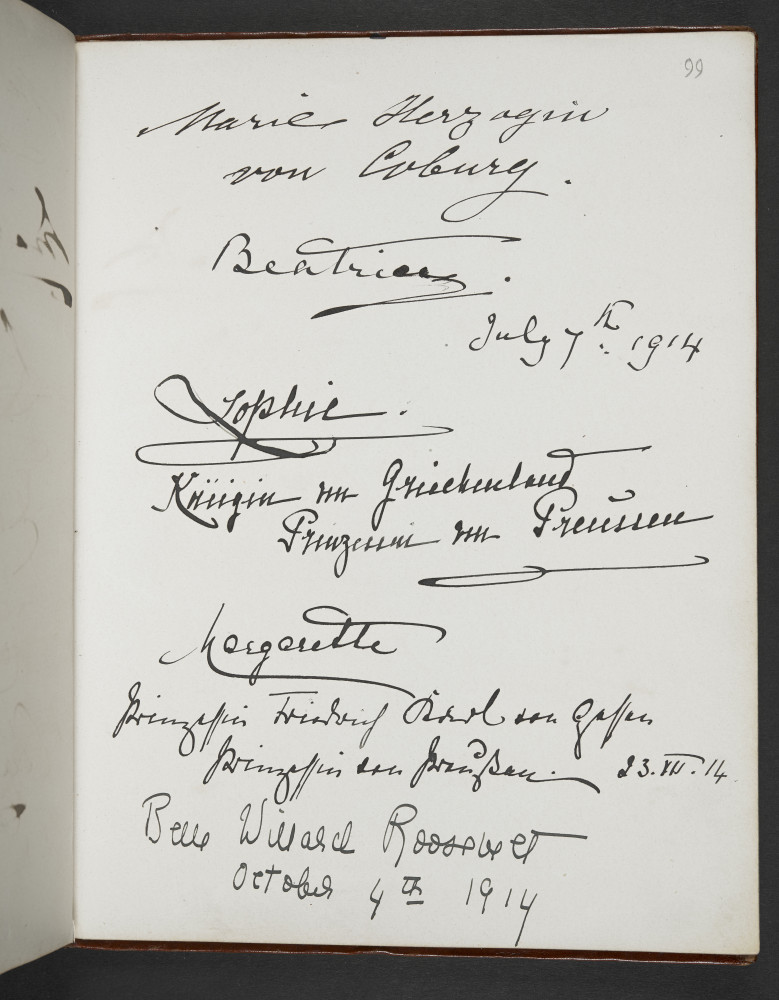 99
Marie Herzogin
von Coburg.
Beatrice.
July 7th. 1914
Sophie.
Königin von Griechenland
Prinzessin von Preussen
Margarethe
Prinzessin Friedrich Karl von Hessen
Prinzessin von Preußen. 23.VII.14.
Belle Willard Roosevelt
October 4th 1914